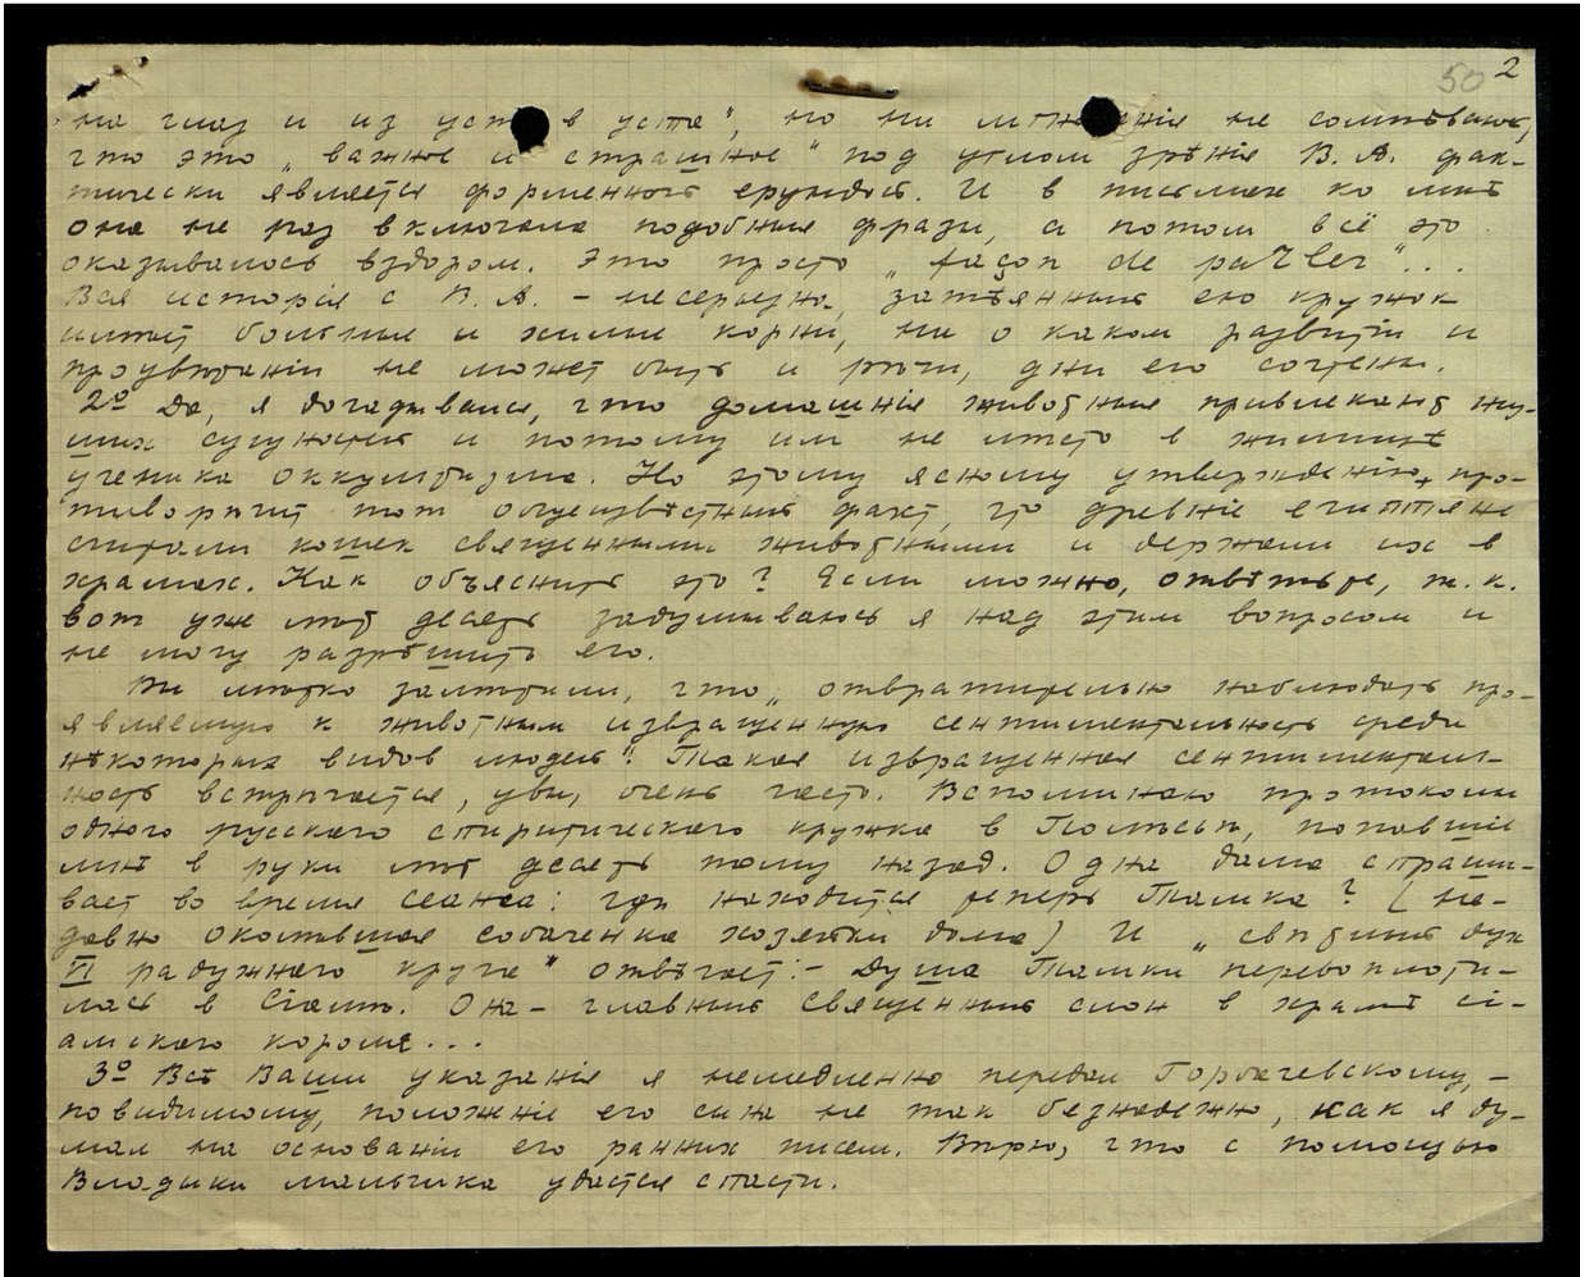 50 2
на глаз и из уст в уста", но ни мгновенія не сомнѣваюсь,
что это „важное и страшное" под углом зрѣнія В. А. фак-
тически является форменной ерундой. И в письмах ко мнѣ
она не раз включала подобныя фразы, а потом всё это
оказывалось вздором. Это просто „façon de parler"...
Вся исторія с В. А. – несерьезна, затѣянный ею кружок
имѣет больные и хилые корни, ни о каком развитіи и
процвѣтаніи не может быть и рѣчи, дни его сочтены.
2º Да, я догадывался, что домашнія животныя привлекают низ-
ших сущностей и потому им не мѣсто в жилищѣ
ученика оккультизма. Но этому ясному утвержденію про-
тиворѣчит тот общеизвѣстный факт, что древніе египтяне
считали кошек священными животными и держали их в
храмах. Как объяснить это? Если можно, отвѣтьте, т. к.
вот уже лѣт десять задумываюсь я над этим вопросом и
не могу разрѣшить его.
Вы мѣтко замѣтили, что „отвратительно наблюдать про-
являемую к животным извращенную сентиментальность среди
нѣкоторых видов людей". Такая извращенная сентименталь-
ность встрѣчается, увы, очень часто. Вспоминаю протоколы
одного русского спиритического кружка в Польшѣ, попавшіе
мнѣ в руки лѣт десять тому назад. Одна дама спраши-
вает во время сеанса: гдѣ находится теперь Тяпка? (не-
давно околѣвшая собаченка хозяйки дома) И „свѣтлый дух
VI радужного круга" отвѣчает: – Душа Тяпки перевоплоти-
лась в Сіамѣ. Она – главный священный слон в храмѣ сі-
амского короля...
3º Всѣ Ваши указанія я немедленно передал Горбачевскому, –
повидимому, положеніе его сына не так безнадежно, как я ду-
мал на основаніи его ранних писем. Вѣрю, что с помощью
Владыки мальчика удастся спасти.